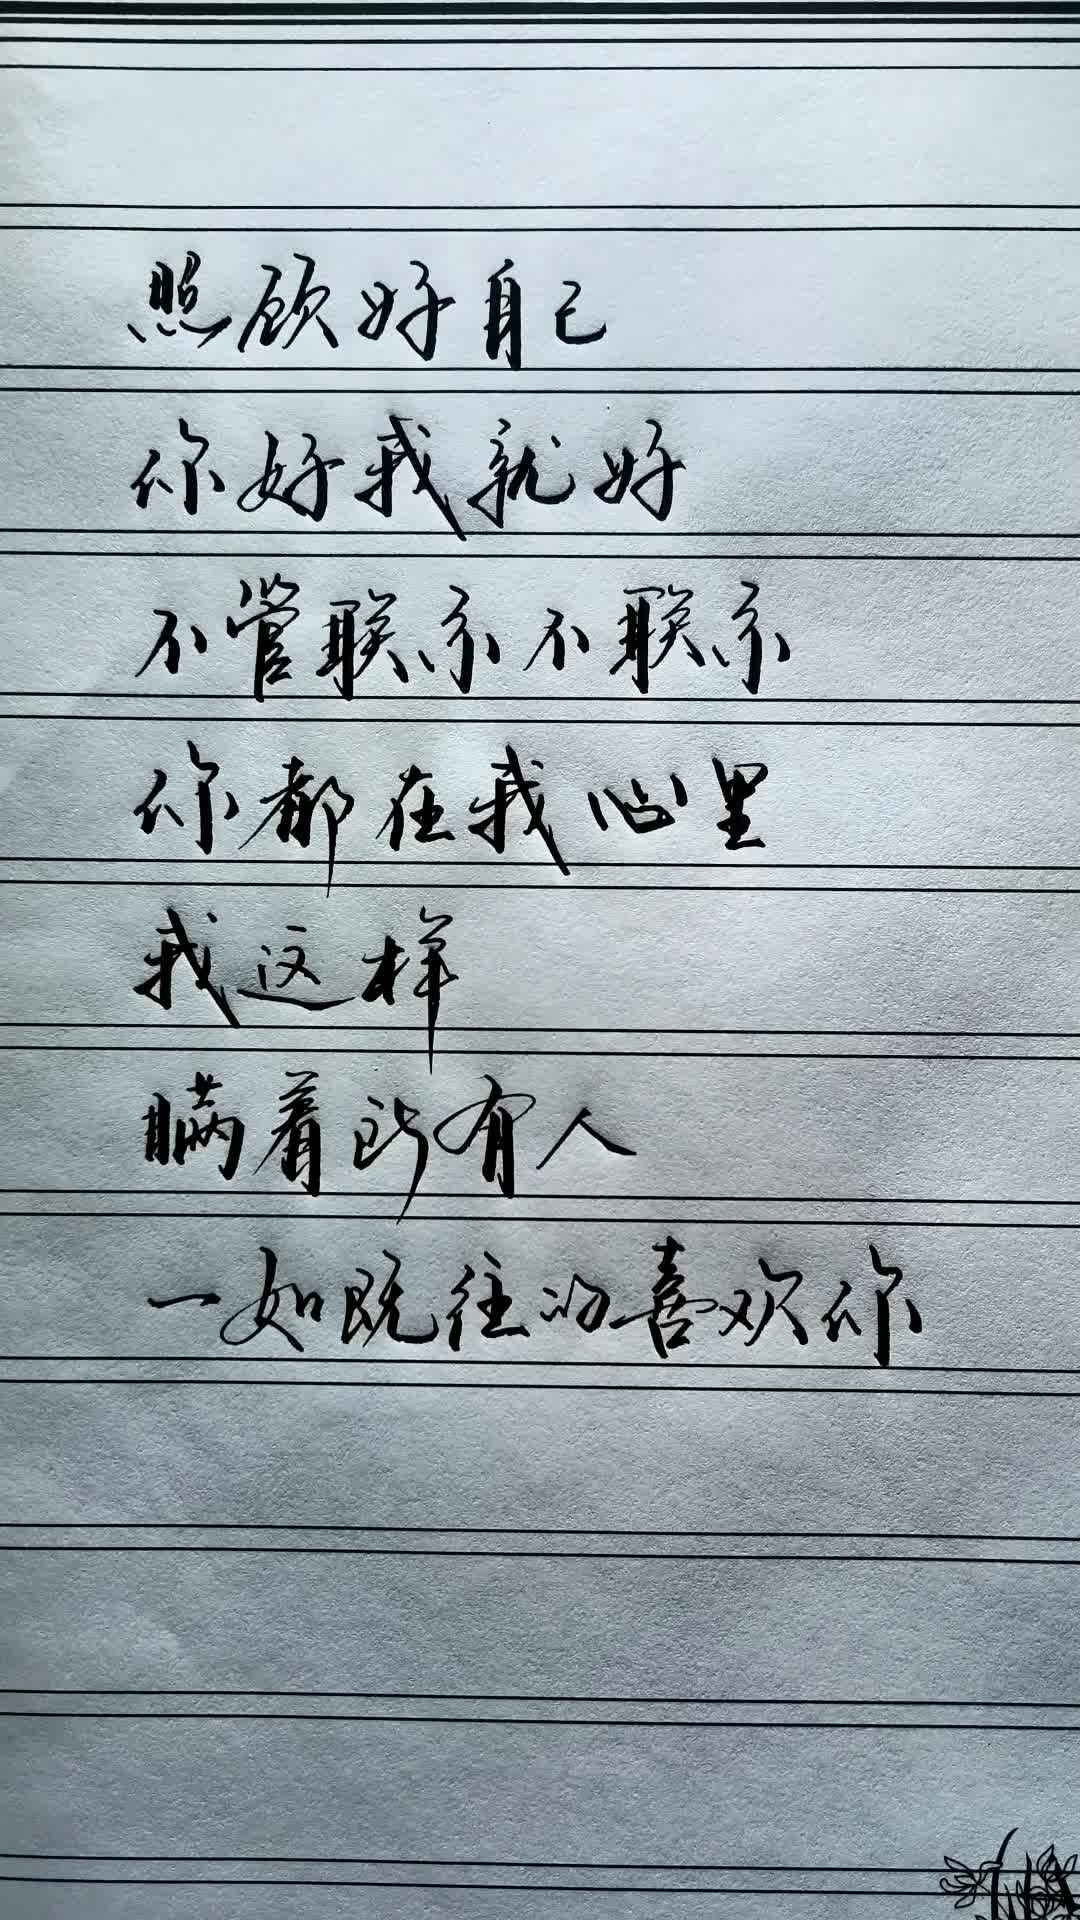 照顾好自己
你好我就好
不管联系不联系
你都在我心里
我这样
瞒着所有人
一如既往的喜欢你